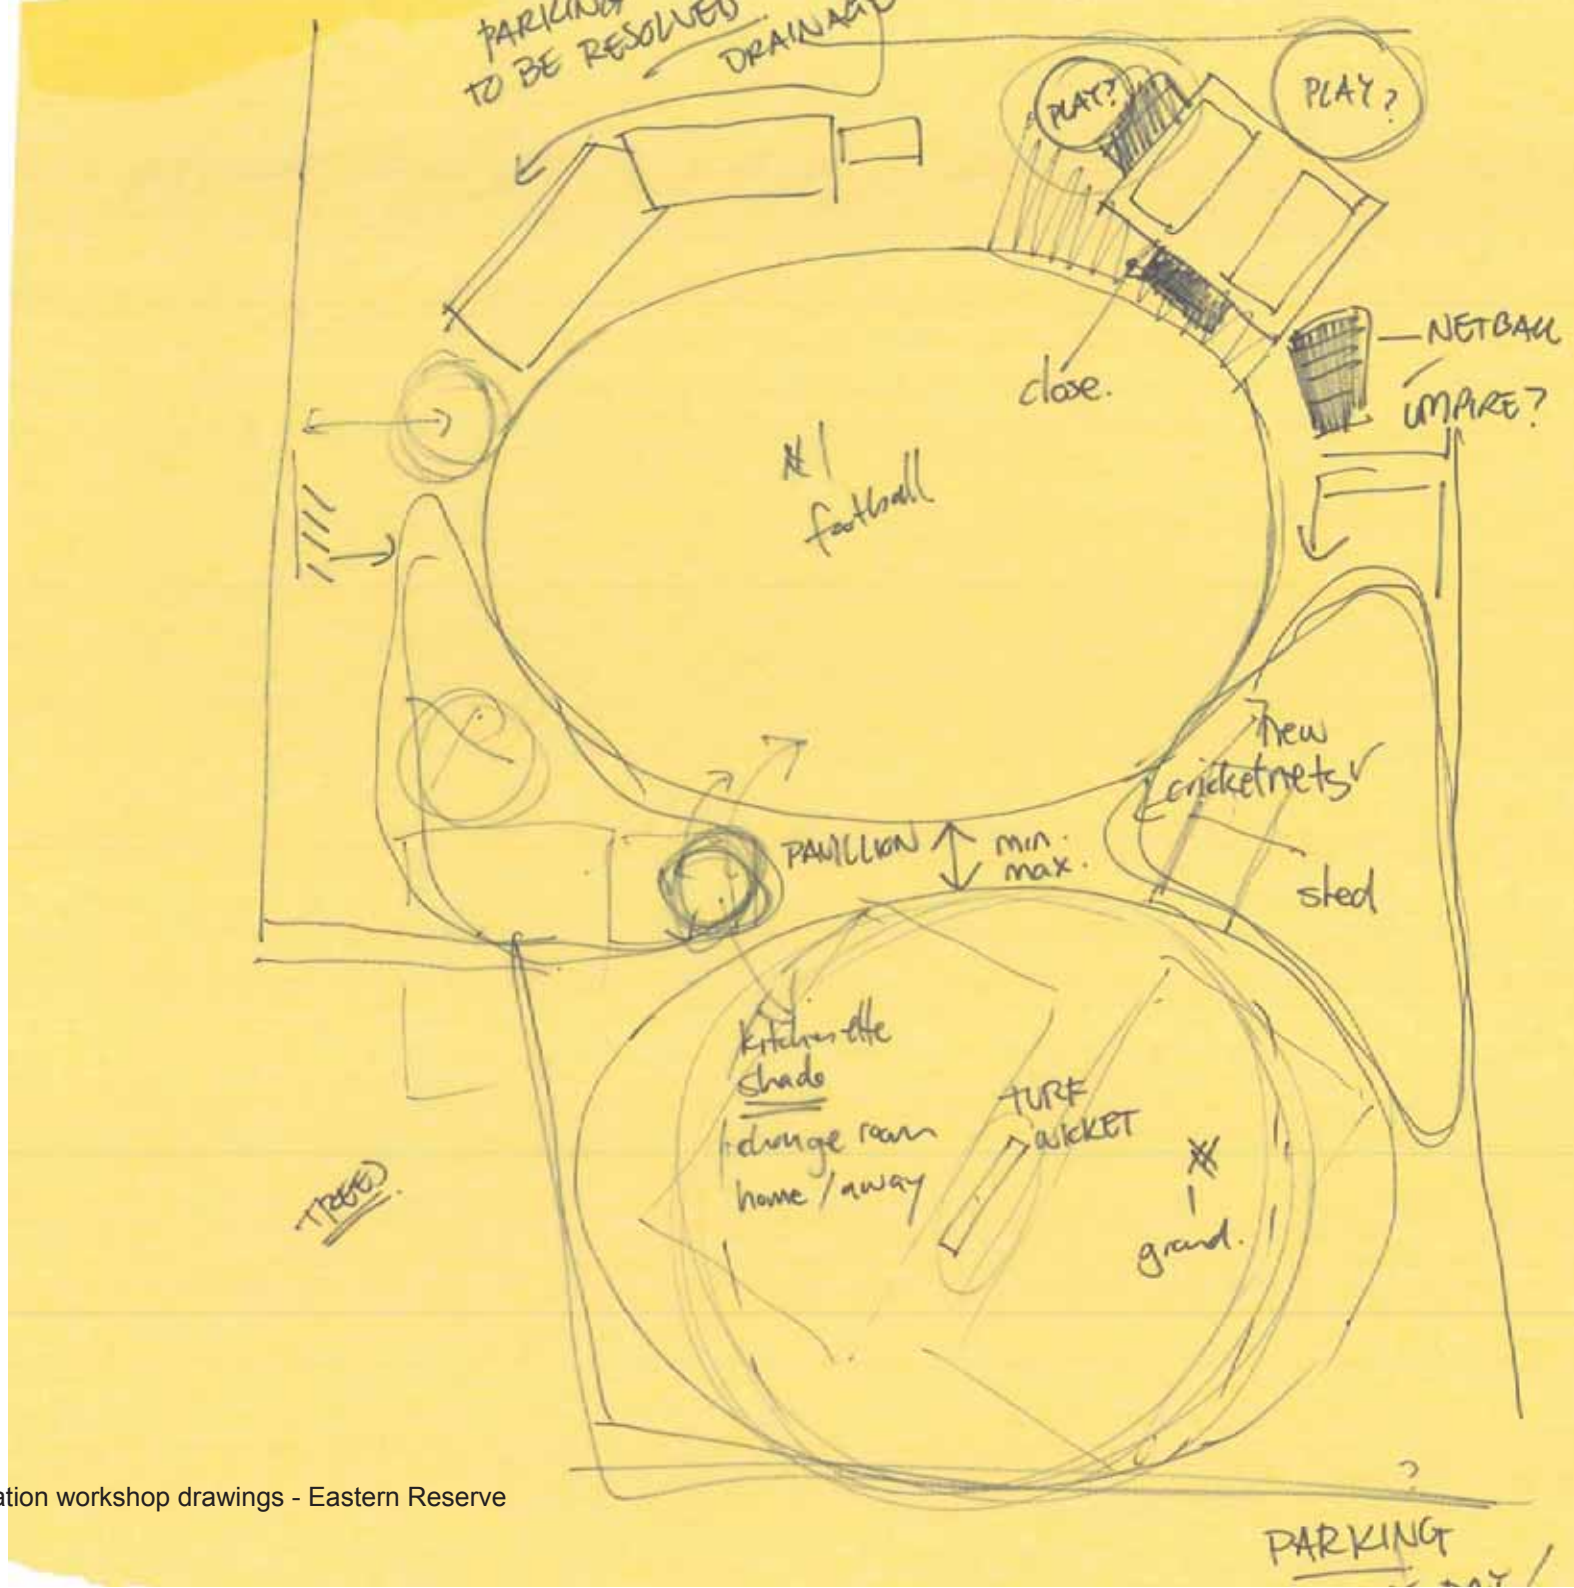 PARKING
TO BE RESOLVED
DRAINAGE
PLAY?
PLAY?
NETBALL
UMPIRE?
close.
#1
football
new
cricket nets
shed
PAVILLION
min.
max.
kitchenette
shade
change room
home / away
TURF
WICKET
#1
grand.
TREES
ation workshop drawings - Eastern Reserve
?
PARKING
DAY /